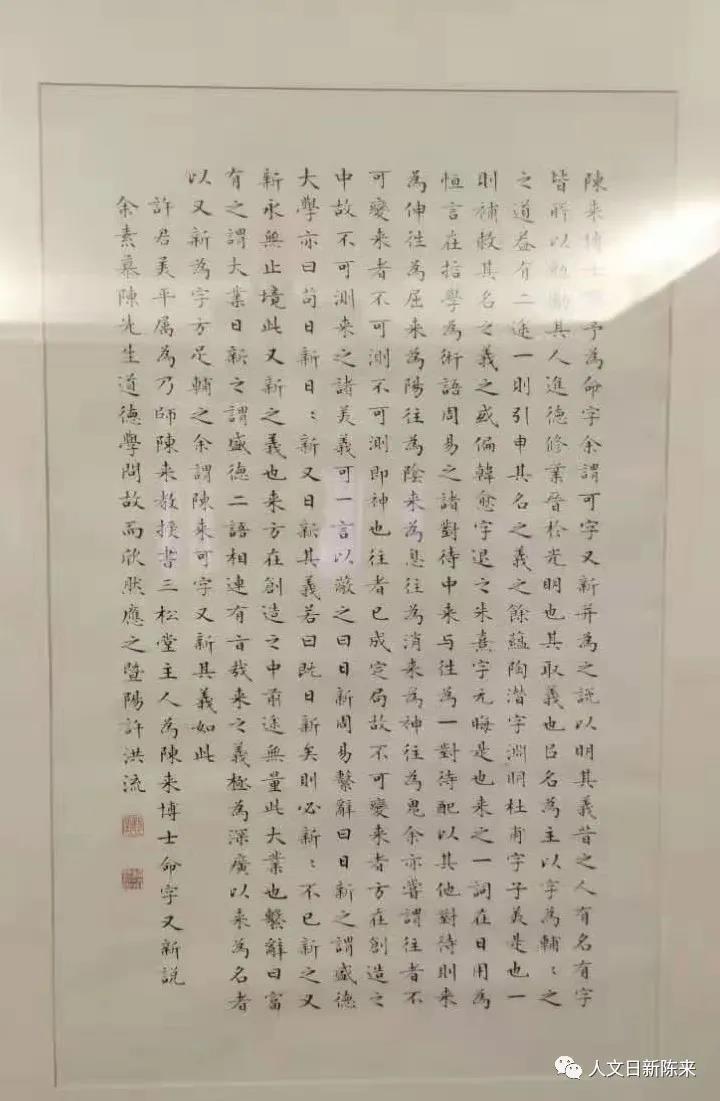 陳来博士予為命字余謂可字又新并為之説以明其義昔之人有名有字
皆所以勉勵其人進德修業晉於光明也其取義也㠯名為主以字為輔〻之
之道蓋有二途一則引申其名之義之餘藴陶潛字淵明杜甫字子美是也一
則補救其名之義之或偏韓愈字退之朱熹字元晦是也来之一詞在日用為
恒言在哲學為術語周易之諸對待中来与往為一對待配以其他對待則来
為伸往為屈来為陽往為陰来為息往為消来為神往為鬼余亦嘗謂往者不
可變来者不可測不可測即神也往者已成定局故不可變来者方在創造之
中故不可測来之諸美義可一言以蔽之曰日新周易繫辭曰日新之謂盛德
大學亦曰苟日新日〻新又日新其義若曰既日新矣則必新〻不已新之又
新永無止境此又新之義也来方在創造之中前途無量此大業也繫辭曰富
有之謂大業日新之謂盛德二語相連有旨哉来之義極為深廣以来為名者
以又新為字方足輔之余謂陳来可字又新其義如此
許君美平属為乃師陳来教授書三松堂主人為陳来博士命字又新説
余素慕陳先生道德學問故而欣然應之暨陽許洪流
人文日新陈来